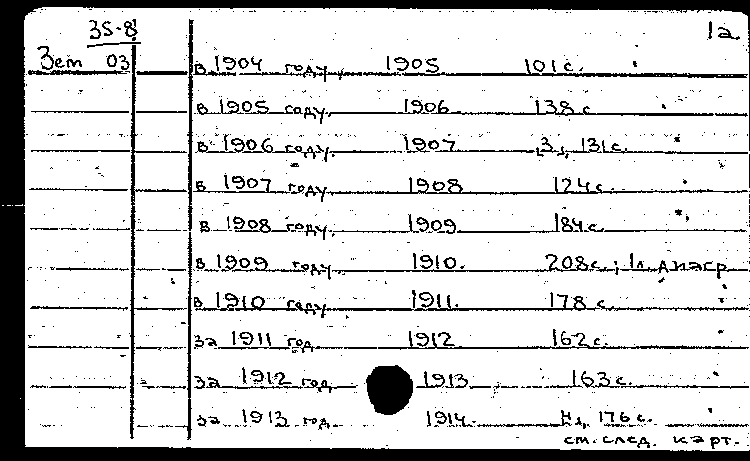 35-8 1а
Зет 03 в 1904 году, 1905 101 с.
в 1905 году, 1906 138 с
в 1906 году. 1907 131 с.
в 1907 году 1908 124 с.
в 1908 году. 1909 184 с.
в 1909 году. 1910. 208 с.; 1 л. диагр
в 1910 году 1911. 178 с.
за 1911 год. 1912 162 с.
за 1912 год 1913 163 с.
за 1913 год. 1914. 176 с.
см. след. карт.